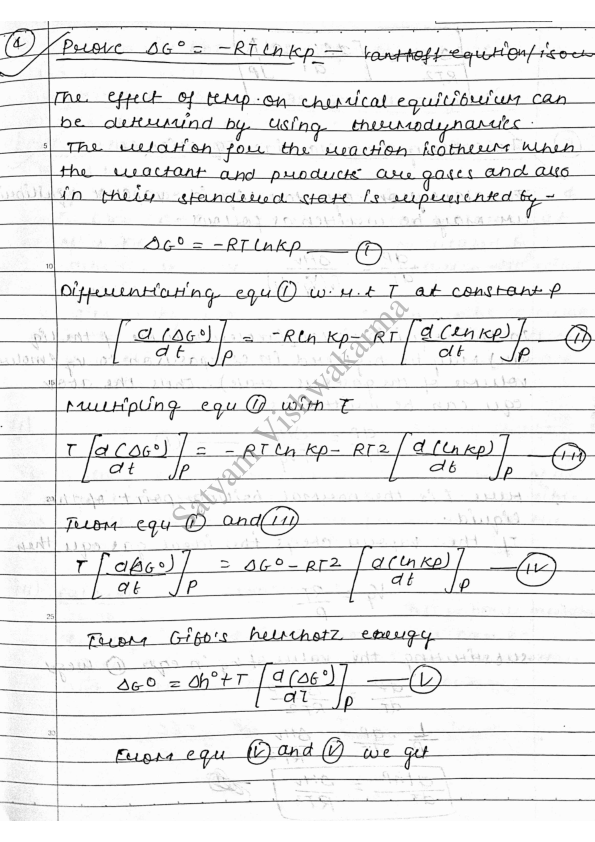 ④ Prove ΔG° = -RT ln Kp - vanthoff eqution/isoch
The effect of temp. on chemical equilibrium can
be determind by using thermodynamics.
5 The relation for the reaction isotherm when
the reactant and products are gases and also
in their standered state is represented by -
ΔG° = -RT ln Kp — ①
10
Differentiating equ ① w.r.t T at constant P
[d(ΔG°)/dt]P = -R ln Kp - RT [d(ln Kp)/dt]P — ⑪
15
Multipling equ ⑪ with T
T [d(ΔG°)/dt]P = -RT ln Kp - RT2 [d(ln Kp)/dt]P — (III)
20
From equ ① and (III)
T [d(ΔG°)/dt]P = ΔG° - RT2 [d(ln Kp)/dt]P — (IV)
25
From Gibb's helmhotz energy
ΔG° = Δh° + T [d(ΔG°)/dT]P — (V)
30
From equ (IV) and (V) we get
Satyam Vishwakarma